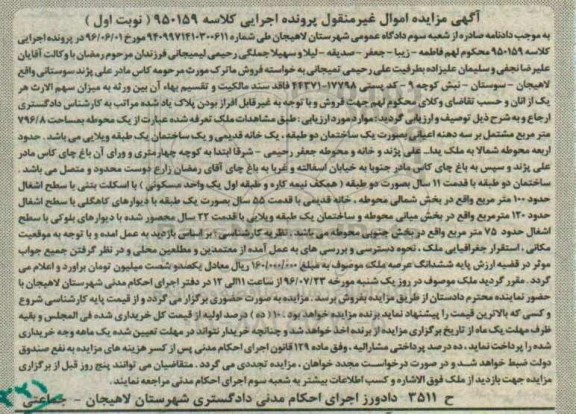 آگهی مزایده اموال غیرمنقول پرونده اجرایی کلاسه ۹۵۰۱۵۹ ( نوبت اول )
به موجب دادنامه صادره از شعبه سوم دادگاه عمومی شهرستان لاهیجان طی شماره ۹۴۰۹۹۷۱۴۱۰۳۰۰۶۱۱ مورخ ۹۶/۰۶/۰۱ در پرونده اجرایی
کلاسه ۹۵۰۱۵۹ محکوم لهم فاطمه - زیبا - جعفر - صدیقه - لیلا و سهیلا جملگی رحیمی لیمیجانی فرزندان مرحوم رمضان با وکالت آقایان
علیرضا نجفی و سلیمان علیزاده بطرفیت علی رحیمی تمیجانی به خواسته فروش ماترک مورث مرحومه کاس مادر علی پژند سوستانی واقع
لاهیجان - سوستان - نبش کوچه ۱ - کد پستی ۱۷۷۹۸-۴۴۳۷۱ فاقد سند مالکیت و تقسیم بهاء آن بین ورثه به میزان سهم الارث هر
یک از آنان و حسب تقاضای وکلای محکوم لهم جهت فروش و با توجه به غیرقابل افراز بودن پلاک یاد شده مراتب به کارشناس دادگستری
ارجاع و به شرح ذیل توصیف و ارزیابی گردید: موارد مورد ارزیابی : طبق مشاهدات ملک تعرفه شده عبارت از یک محوطه بمساحت ۷۹۶/۸
متر مربع مشتمل بر سه دهنه اعیانی بصورت یک ساختمان دو طبقه ، یک خانه قدیمی و یک ساختمان یک طبقه ویلایی می باشد . حدود
اربعه محوطه شمالا به ملک یدا... علی پژند و خانه و محوطه جعفر رحیمی - شرقا ابتدا به کوچه چهارمتری و ورای آن باغ چای کاس مادر
علی پژند و سپس به باغ چای کاس مادر جنوبا به خیابان اسفالته و غربا به باغ چای آقای رمضان زارع دوست محدود و متصل می باشد .
ساختمان دو طبقه با قدمت ۱۱ سال بصورت دو طبقه ( همکف نیمه کاره و طبقه اول یک واحد مسکونی ) با اسکلت بتنی با سطح اشغال
حدود ۱۰۰ متر مربع واقع در بخش شمالی محوطه . خانه قدیمی با قدمت ۵۵ سال بصورت یک طبقه با دیوارهای کاهگلی با سطح اشغال
حدود ۱۲۰ مترمربع واقع در بخش میانی محوطه و ساختمان یک طبقه ویلایی با قدمت ۲۲ سال محصور شده با دیوارهای بلوکی با سطح
اشغال حدود ۷۵ متر مربع واقع در بخش جنوبی محوطه می باشد . نظریه کارشناسی : بر اساس بازدید به عمل امده و با توجه به موقعیت
مکانی ، استقرار جغرافیایی ملک ، نحوه دسترسی و بررسی های به عمل آمده از معتمدین و مطلعین محلی و در نظر گرفتن جمیع جواب
موثر در قضیه ارزش پایه ششدانگ عرصه ملک موصوف به مبلغ ۱۶۰/۰۰۰/۰۰۰ ریال معادل یکصدو شصت میلیون تومان براورد و اعلام می
گردد . مقرر گردید ملک موصوف در روز یک شنبه مورخه ۹۶/۰۷/۲۳ از ساعت ۱۱الی ۱۲ در دفتر اجرای احکام مدنی شهرستان لاهیجان با
حضور نماینده محترم دادستان از طریق مزایده بفروش برسد . مزایده به صورت حضوری برگزار می گردد و از قیمت پایه کارشناسی شروع
و کسی که بالاترین قیمت را پیشنهاد نماید برنده مزایده خواهد بود . ۱۰ ( ده ) درصد اولیه از قیمت کل خریداری شده فی المجلس و بقیه
ظرف مهلت یک ماه از تاریخ برگزاری مزایده از برنده اخذ خواهد شد و چنانچه خریدار نتواند در مهلت تعیین شده یک ماهه وجه خریداری
شده را پرداخت نماید ، ده درصد پرداختی مشارالیه ، وفق ماده ۱۲۹ قانون اجرای احکام مدنی پس از کسر هزینه های مزایده به نفع صندوق
دولت ضبط خواهد شد و در صورت درخواست مجدد خواهان ، مزایده تجددی می گردد . متقاضیان می توانند پنج روز قبل از برگزاری
مزایده جهت بازدید از ملک فوق الاشاره و کسب اطلاعات بیشتر به شعبه سوم اجرای احکام مدنی مراجعه نمایند.
ح ۳۵۱۱ دادورز اجرای احکام مدنی دادگستری شهرستان لاهیجان - جماعتی
۳۲۱